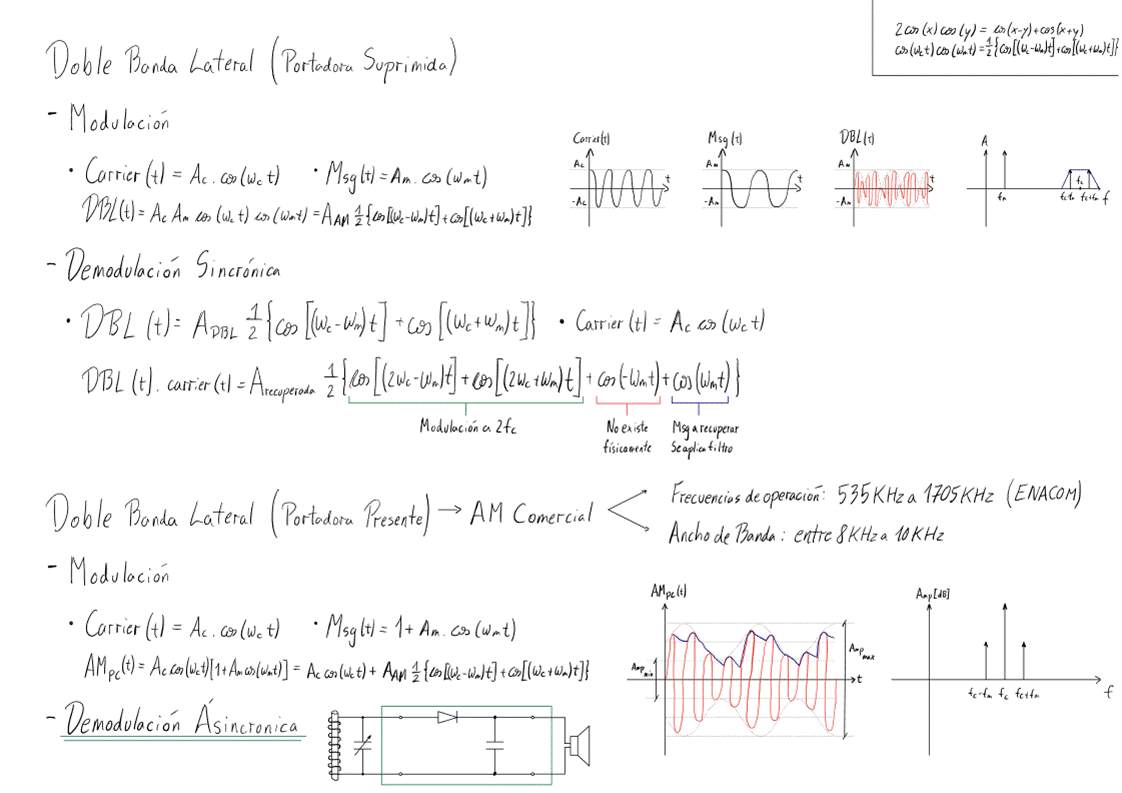 2 cos (x) cos (y) = cos (x-y) + cos (x+y)
cos (ωc t) cos (ωm t) = 1/2 {cos[(ωc-ωm)t] + cos[(ωc+ωm)t]}
Doble Banda Lateral (Portadora Suprimida)
- Modulación
• Carrier (t) = Ac . cos (ωc t) • Msg (t) = Am . cos (ωm t)
DBL(t) = Ac Am cos (ωc t) cos (ωm t) = AAM 1/2 {cos[(ωc-ωm)t] + cos[(ωc+ωm)t]}
Carrier(t)
Ac
-Ac
t
Msg (t)
Am
-Am
t
DBL(t)
Am
-Am
t
A
fm
fc
fc+fm fc+fm f
- Demodulación Sincrónica
• DBL (t) = ADBL 1/2 {cos [(ωc-ωm)t] + cos [(ωc+ωm)t]} • Carrier (t) = Ac cos (ωc t)
DBL (t) . carrier (t) = Arecuperada 1/2 {cos[(2ωc-ωm)t] + cos[(2ωc+ωm)t] + cos(-ωm t) + cos(ωm t)}
Modulación a 2fc
No existe
físicamente
Msg a recuperar
Se aplica filtro
Doble Banda Lateral (Portadora Presente) → AM Comercial
Frecuencias de operación: 535 KHz a 1705 KHz (ENACOM)
Ancho de Banda: entre 8KHz a 10KHz
- Modulación
• Carrier (t) = Ac . cos (ωc t) • Msg (t) = 1 + Am . cos (ωm t)
AMpc(t) = Ac cos(ωc t)[1+Am cos(ωm t)] = Ac cos (ωc t) + AAM 1/2 {cos[(ωc-ωm)t] + cos[(ωc+ωm)t]}
AMpc(t)
Amp min
Amp max
t
Amp [dB]
fc-fm fc fc+fm
f
- Demodulación Ásincronica